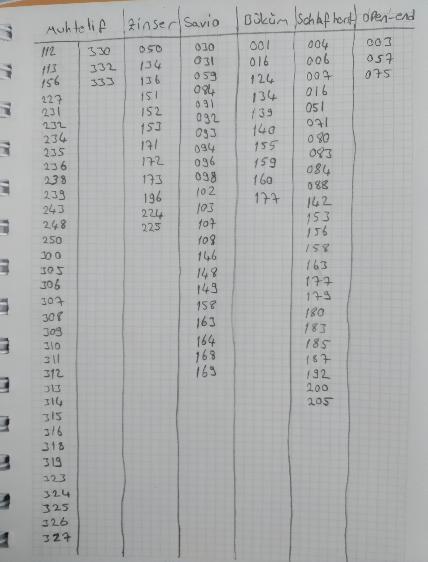 Muhtelif Zinser Savio Büküm Schlafhorst Open-end
112 330 050 030 001 004 003
113 332 134 031 016 006 057
156 333 136 059 124 007 075
227 151 084 134 016
231 152 091 139 051
232 153 092 140 071
234 171 093 155 080
235 172 094 159 083
236 173 096 160 084
238 196 098 177 088
239 224 102 142
243 225 103 153
248 107 156
250 108 158
300 146 163
305 148 177
306 149 179
307 158 180
308 163 183
309 164 185
310 168 187
311 169 192
312 200
313 205
314
315
316
318
319
323
324
325
326
327